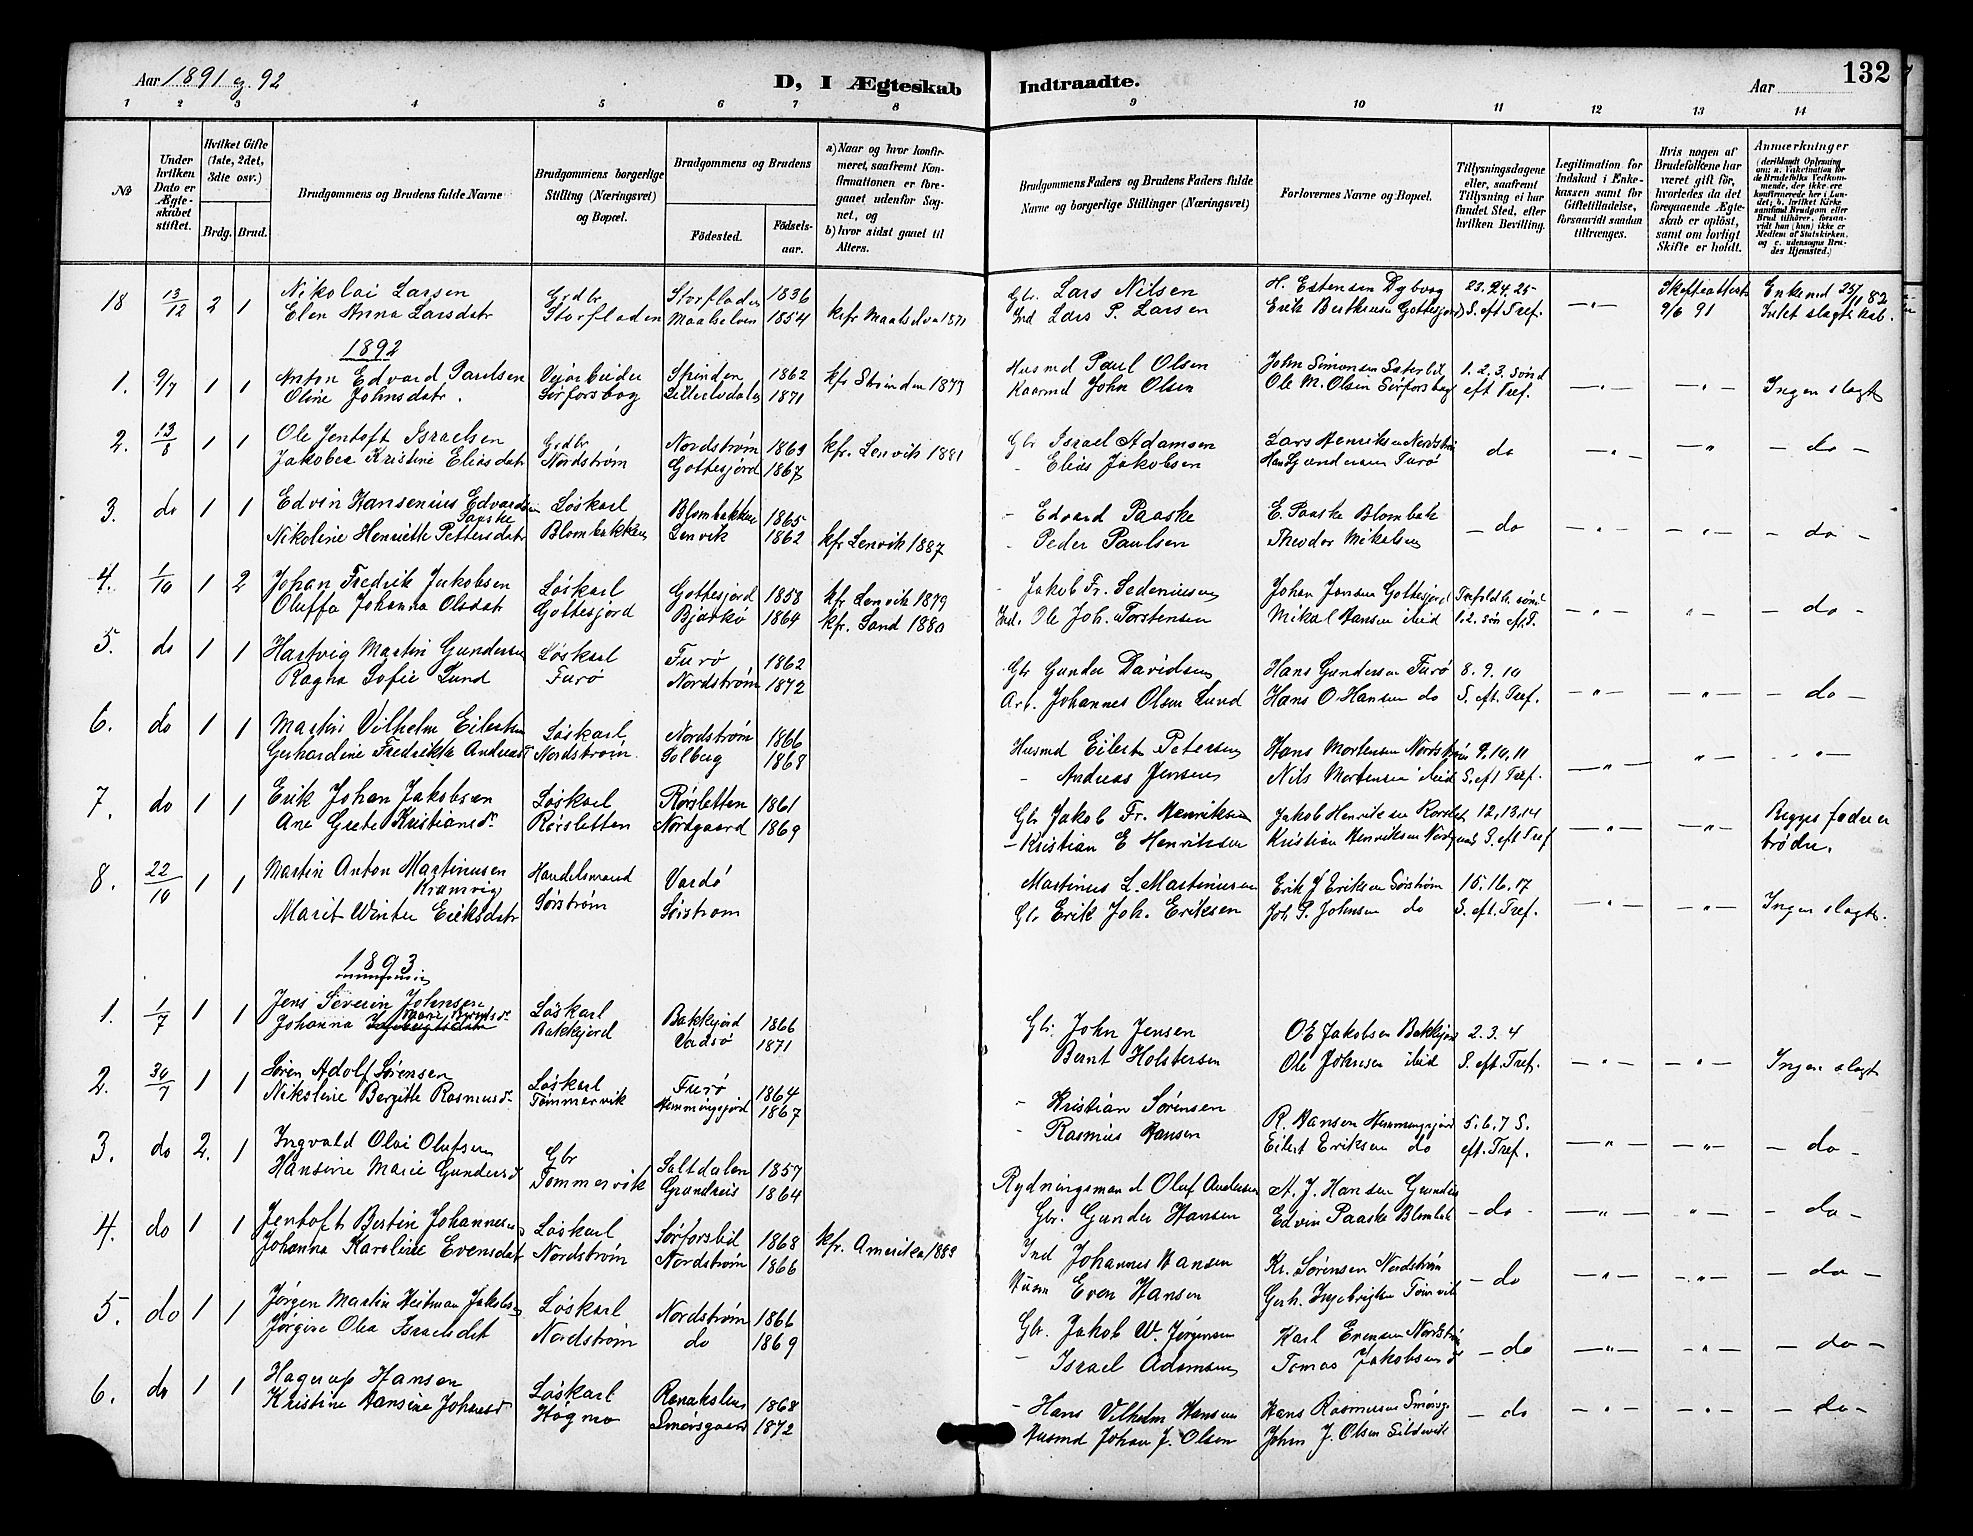 Aar 1891 og 92
D, I Ægteskab Indtraadte.
Aar
132
1 2 3 4 5 6 7 8 9 10 11 12 13 14
No
Under hvilken Dato er Ægteskabet stiftet.
Hvilket Gifte (1ste, 2det, 3die osv.)
Brdg. Brud.
Brudgommens og Brudens fulde Navne
Brudgommens borgerlige Stilling (Næringsvei) og Bopæl.
Brudgommens og Brudens
Födested. Födselsaar.
a) Naar og hvor konfirmeret, saafremt Konfirmationen er foregaaet udenfor Sognet, og
b) hvor sidst gaaet til Alters.
Brudgommens Faders og Brudens Faders fulde Navne og borgerlige Stillinger (Næringsvei)
Forlovernes Navne og Bopæl.
Tillysningsdagene eller, saafremt Tillysning ei har fundet Sted, efter hvilken Bevilling.
Legitimation for Indskud i Enkekassen samt for Giftetilladelse, forsaavidt saadan tiltrænges.
Hvis nogen af Brudefolkene har været gift før, hvorledes da det foregaaende Ægteskab er oplöst, samt om lovligt Skifte er holdt.
Anmærkninger (deriblandt Oplysning om: a. Vakcination for de Brudefolks Vedkommende, der ikke ere konfirmerede her i Landet; b. hvilket Kirkesamfund Brudgom eller Brud tilhörer, forsaavidt han (hun) ikke er Medlem af Statskirken, og c. udensogns Brudes Hjemsted.)
18 13/12 2 1 Nikolai Larsen Grdbr Storfladen 1836 Gbr. Lars Nilsen H. Estensen Dybvag 23. 24. 25 Skifteattest Enkemd 25/11 82
Elen Anna Larsdatr Storfladen Maalselven 1854 kofr Maalselven 1871 Ind Lars P. Larsen Erik Berthensen Gottesjord S. eft Tref. — " — 9/6 91 Intet slagtskab.
1892
1. 9/7 1 1 Anton Edvard Paulsen Veiarbeider Strinden 1862 kfr Strinden 1877 Husmd Paul Olsen John Simonsen 1. 2. 3. sønd
Oline Johnsdatr. Sørforsbog 1871 Kaarmd John Olsen Ole M. Olsen Sørforsbog eft Tref. — " — — " — Ingen slagt
2. 13/8 1 1 Ole Jentoft Israelsen Grdbr Nordstrøm 1863 kfr. Lenvik 1881 Gbr Israel Adamsen Lars Henriksen Nordstrøm do — " — " — do —
Jakobea Kristine Eliasdatr Nordstrøm Gottesjord 1867 - Elias Jakobsen Hans Gundersen Furø
3. do 1 1 Edvin Hansenius Edvardsen Løskarl Blombakken 1865 - Edvard Paaske E. Paaske Blombak — do — " — " — — do —
Paaske
Nikoline Henriette Pettersdatr Blombakken Lenvik 1862 kfr Lenvik 1887 - Peder Paulsen Theodor Mikelsen
4. 1/10 1 2 Johan Fredrik Jakobsen Løskarl Gottesjord 1858 kfr Lenvik 1879 - Jakob Fr. Sedeniusen Johan Jonsen Gottesjord
Oluffa Johanna Olsdatr Gottesjord Bjarkø 1864 kfr. Sand 1880 Ind. Ole Joh. Torstensen Mikal Hansen ibid 1. 2. søn eft. T. — " — " — do —
5. do 1 1 Hartvig Martin Gundersen Løskarl Furø 1862 Gbr Gunder Davidsen Hans Gundersen Furø 8. 9. 10
Ragna Sofie Lund Furø Nordstrøm 1872 Arb. Johannes Olsen Lund Hans O Hansen do S. eft. Tref. — " — — " — — do —
6. do 1 1 Martin Vilhelm Eilertsen Løskarl Nordstrøm 1866 Husmd Eilert Petersen Hans Mortensen Nordstrøm 9. 10. 11
Gerhardine Fredrikke Andreasd Nordstrøm. Solberg 1868 - Andreas Jensen Nils Mortensen ibid S. eft Tref. — " — " — - " —
7. do 1 1 Erik Johan Jakobsen Løskarl Rørsletten 1861 Gbr Jakob Fr. Henriksen Jakob Henriksen Rorslet 12, 13, 14 Begges fader er
Ane Grete Kristiansdr Rørsletten Nordgaard 1869 - Kristian E Henriksen Kristian Henriksen Nordgaard S. eft Tref — " — — " — brødre.
8. 22/10 1 1 Martin Anton Martinusen Handelsmand Vardø Martinus L. Martinusen Erik J Eriksen Sørstrøm 15. 16. 17
Kramvig
Marit Winter Eriksdatr Sørstrøm Sørstrøm Gbr Erik Joh. Eriksen Joh. P. Johnsen do S. eft. Tref. — " — — " — Ingen slagt.
1893
1. 1/7 1 1 Jens Severin Johnsen Løskarl Bakkejord 1866 Gbr. John Jensen OE Jakobsen Bakkejord 2. 3. 4
Johanna Marie Berntsdr Bakkejord Vadsø 1871 Bernt Holstersen Ole Johnsen ibid S. eft. Tref. — " — — " — Ingen slagt
2. 30/7 1 1 Søren Adolf Sørensen Løskarl Furø 1864 - Kristian Sørensen R. Hansen Hemmingsjord 5. 6. 7 S.
Nikoline Bergitte Rasmusdr Tømmervik Hemmingsjord 1867 - Rasmus Hansen Eilert Eriksen do eft. Tref. — " — — " — — do —
3. do 2. 1 Ingvald Olai Olufsen Gbr Saltdalen 1857 Rydningsmand Oluf Andersen A. J. Hansen
Hansine Marie Gundersd Tømmervik Grundreis 1864 Gbr. Gunder Hansen Edvin Paaske Blombak — do — — " — " — — do —
4. do 1 1 Jentoft Bertin Johannesen Løskarl Sørforsbid 1868 kfr. Amerika 1883 Ind Johannes Hansen Kr. Sørensen Nordstrøm
Johanna Karoline Evensdat Nordstrøm Nordstrøm 1866 Husm Even Hansen Gerh. Ingebrigtsen Tømvik — do — " — — " — — do —
5. do 1 1 Jørgen Martin Heitman Jakobsen Løskarl Nordstrøm 1866 Gbr. Jakob W. Jørgensen Karl Evensen Nordstrøm
Jørgine Olea Israelsdat Nordstrøm do 1869 - Israel Adamsen Tomas Jakobsen d — do — " — — " — — do —
6. do 1 1 Hagerup Hansen Løskarl Renakslen 1868 - Hans Vilhelm Hansen Hans Rasmussen Smørsg. — do — " — — " — — do —
Kristine Hansine Johansd Høgmo Smørsgaard 1872 Husmd Johan J. Olsen John J. Olsen Sildevik